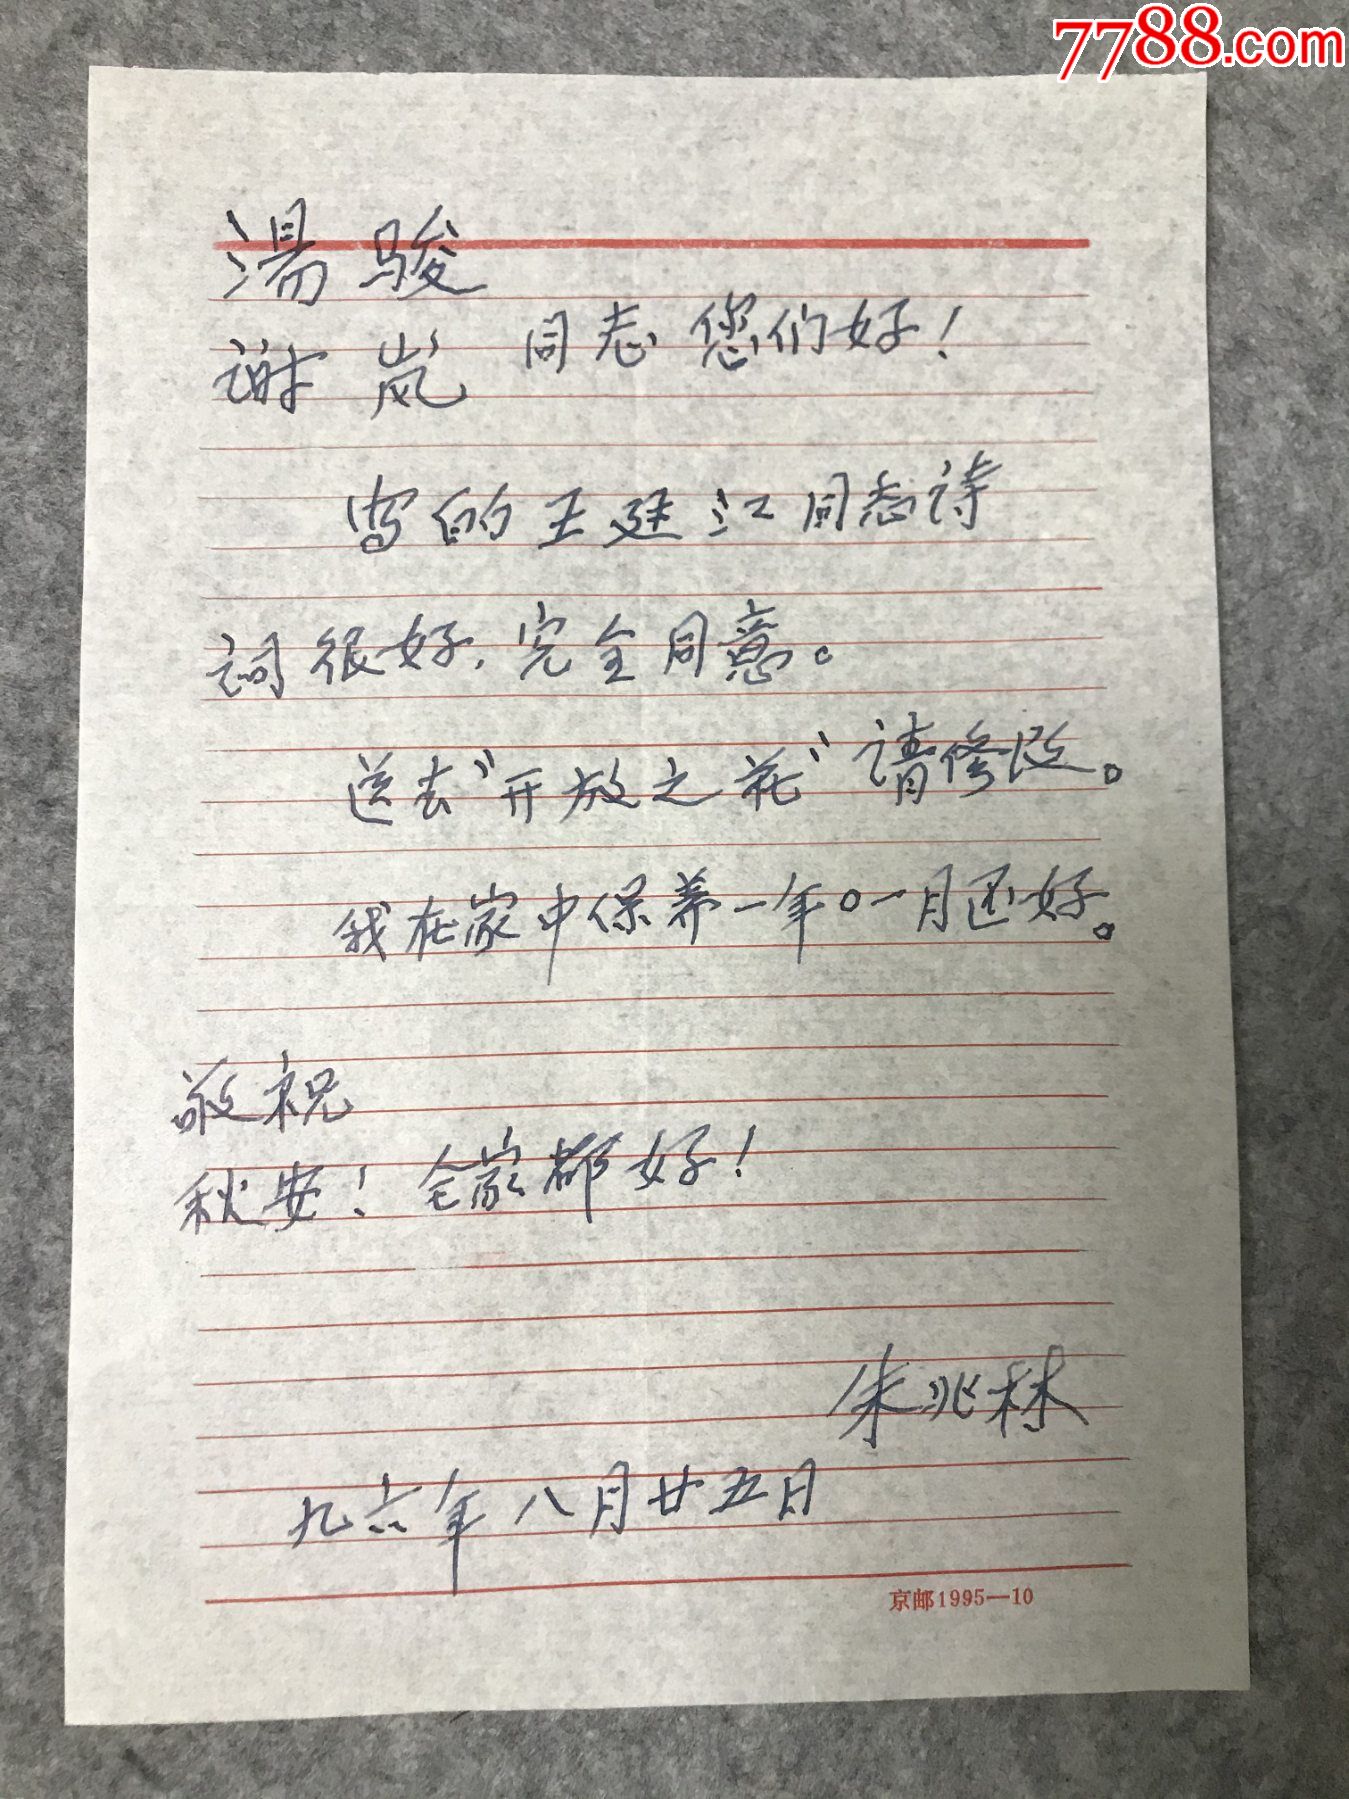 7788.com
湯骏
谢岚 同志您们好！
写的王廷江同志诗
词很好，完全同意。
送去“开放之花”请修改。
我在家中保养一年〇一月还好。
敬祝
秋安！全家都好！
朱兆林
九六年八月廿五日
京邮1995—10